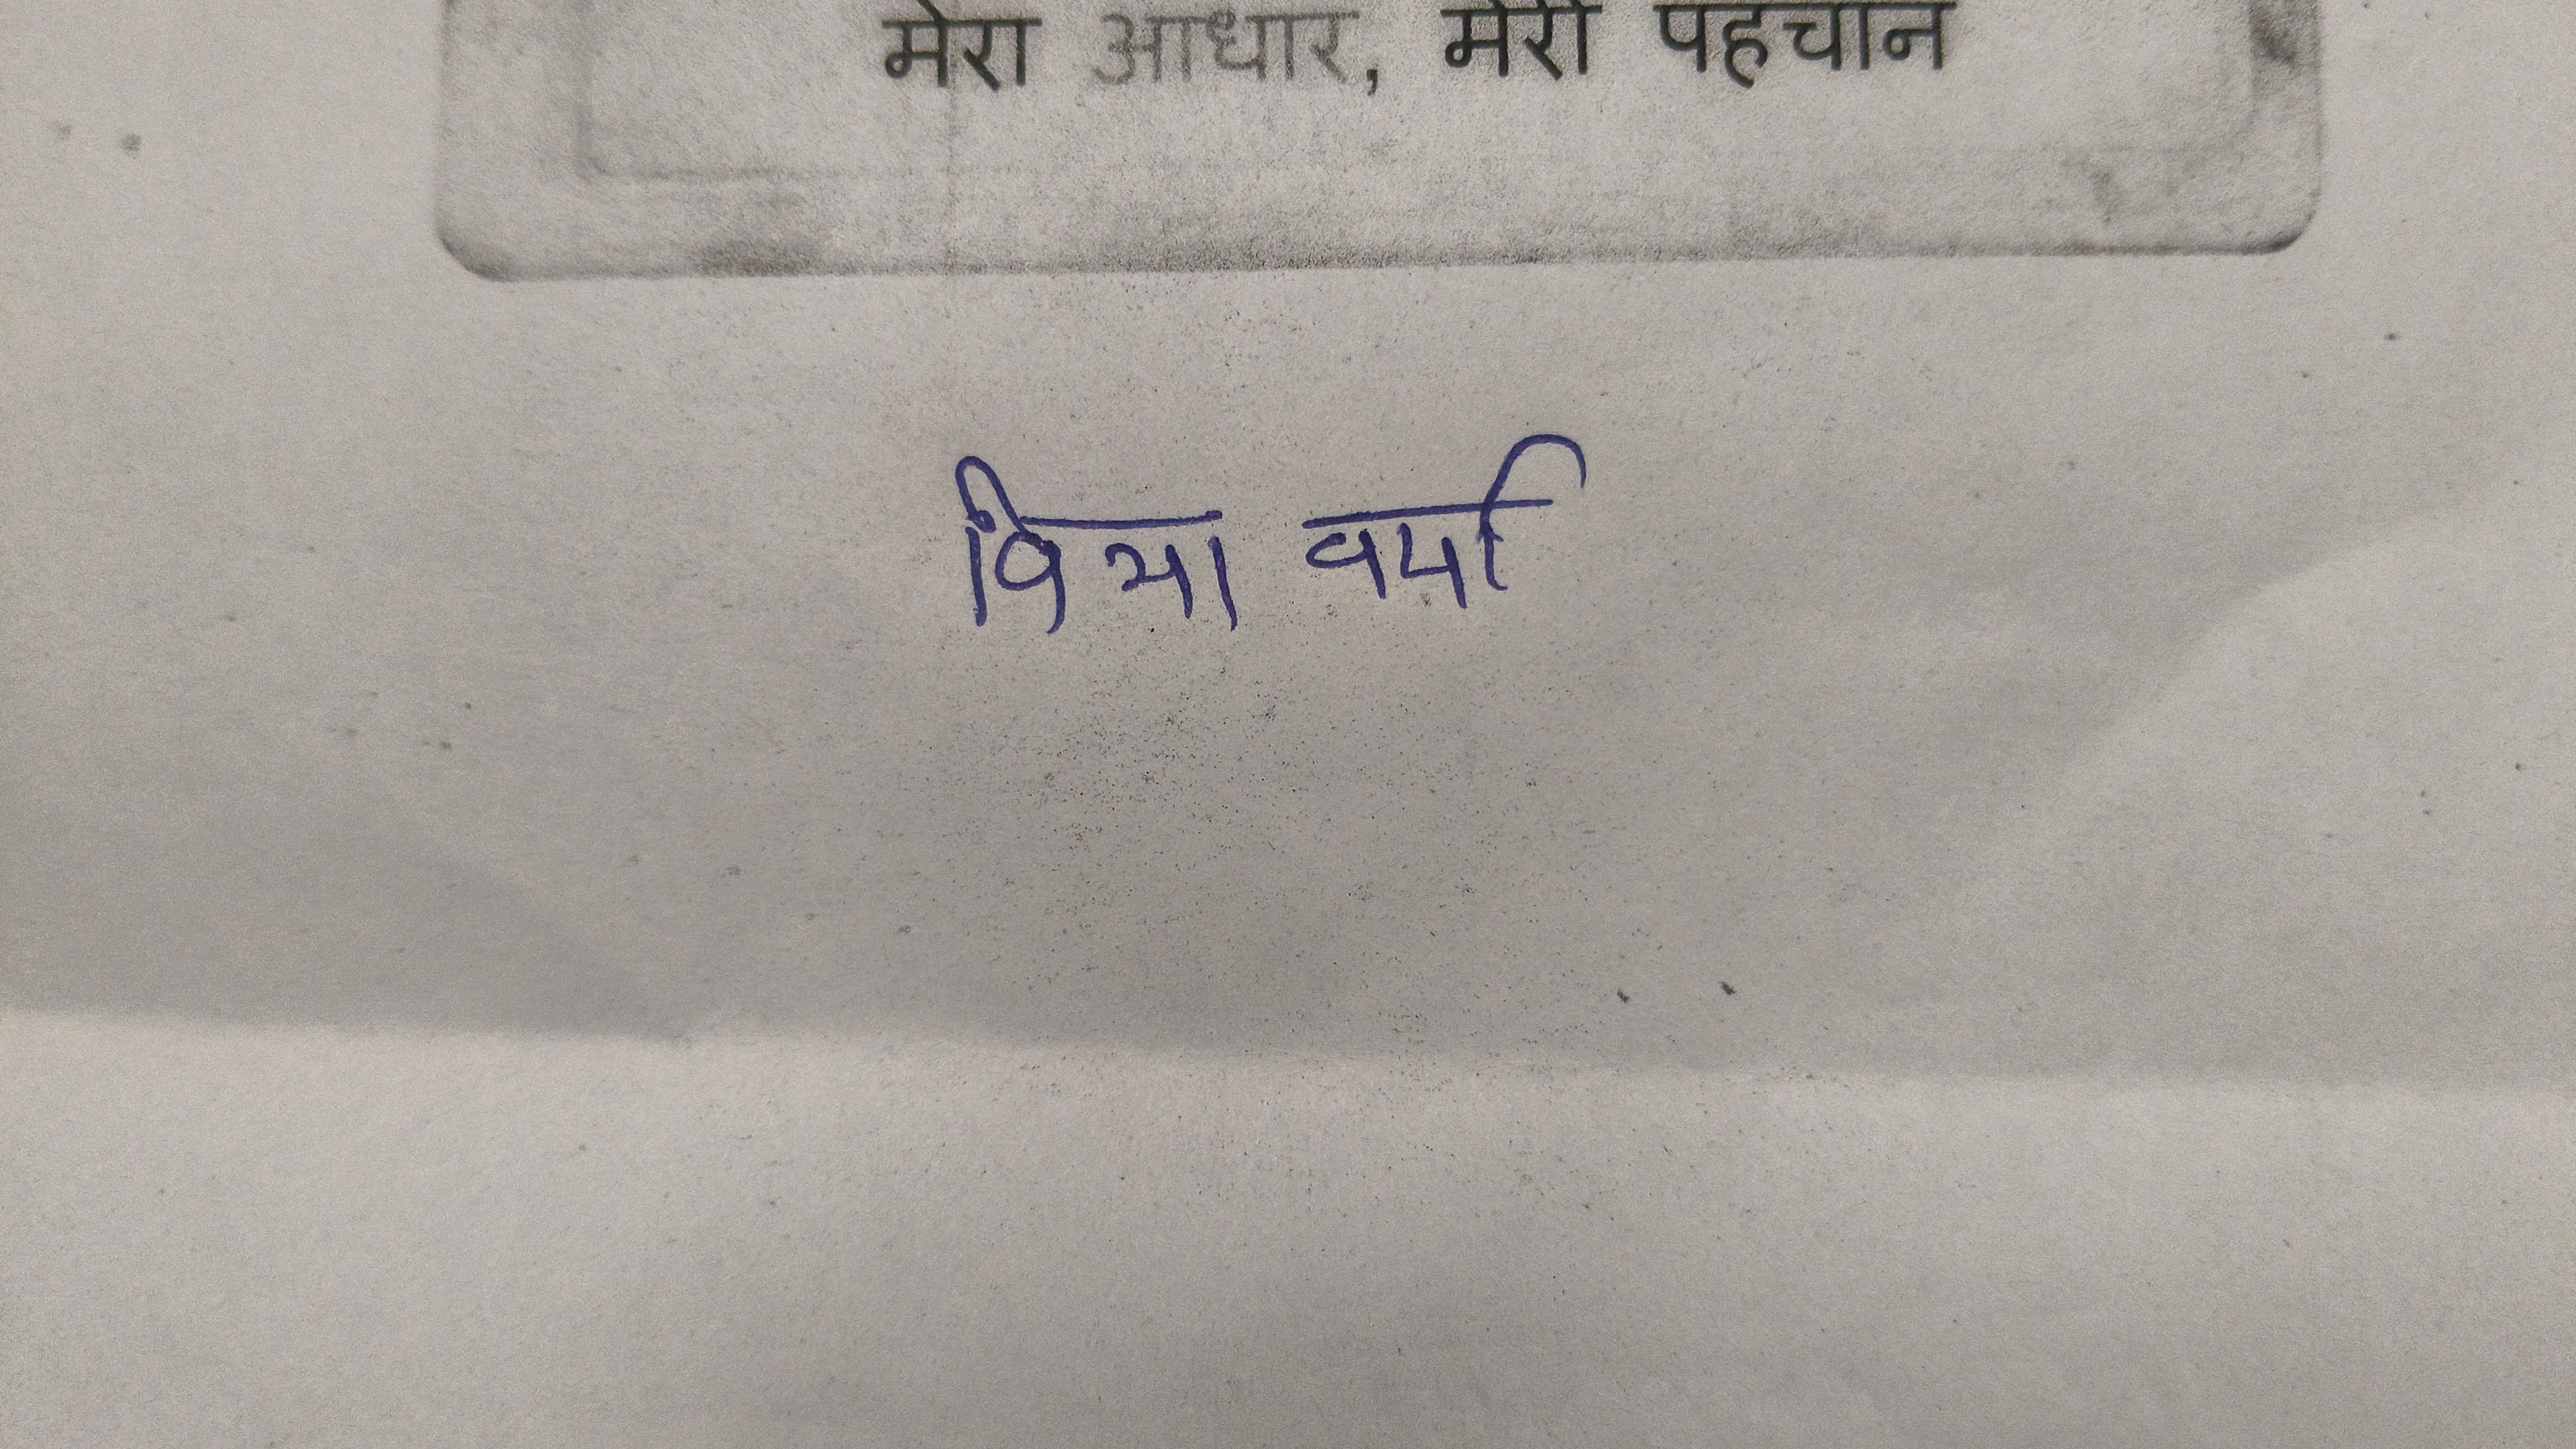 मेरा आधार, मेरी पहचान
विभा वर्मा